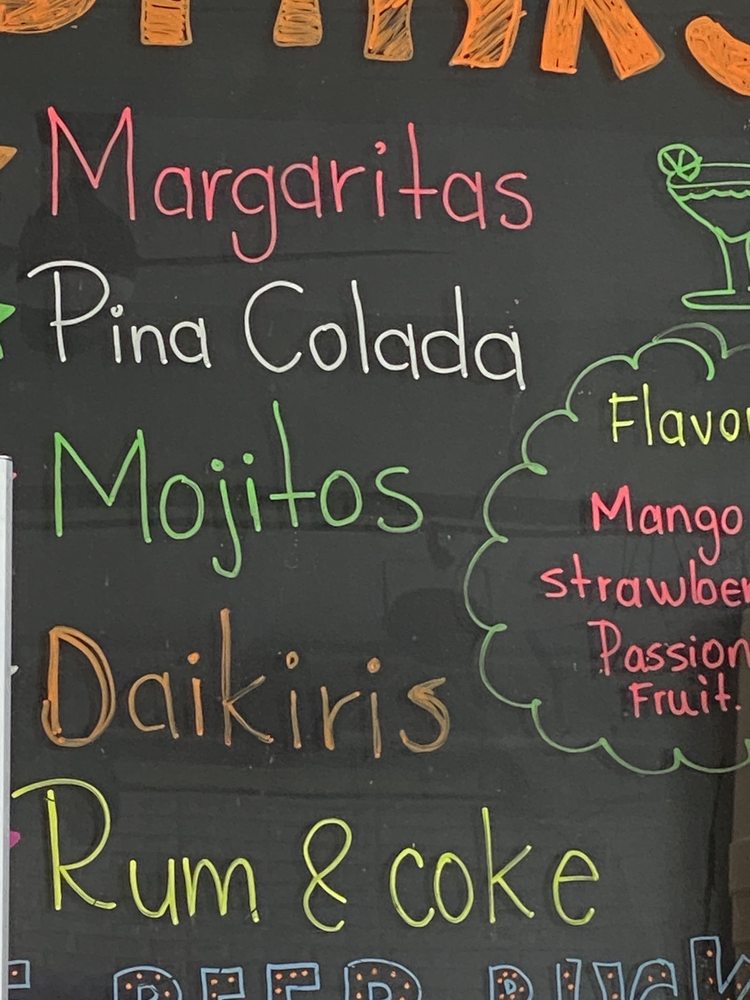 Margaritas
Pina Colada
Mojitos
Daikiris
Rum & coke
Flavo
Mango
strawber
Passion
Fruit.
BEER